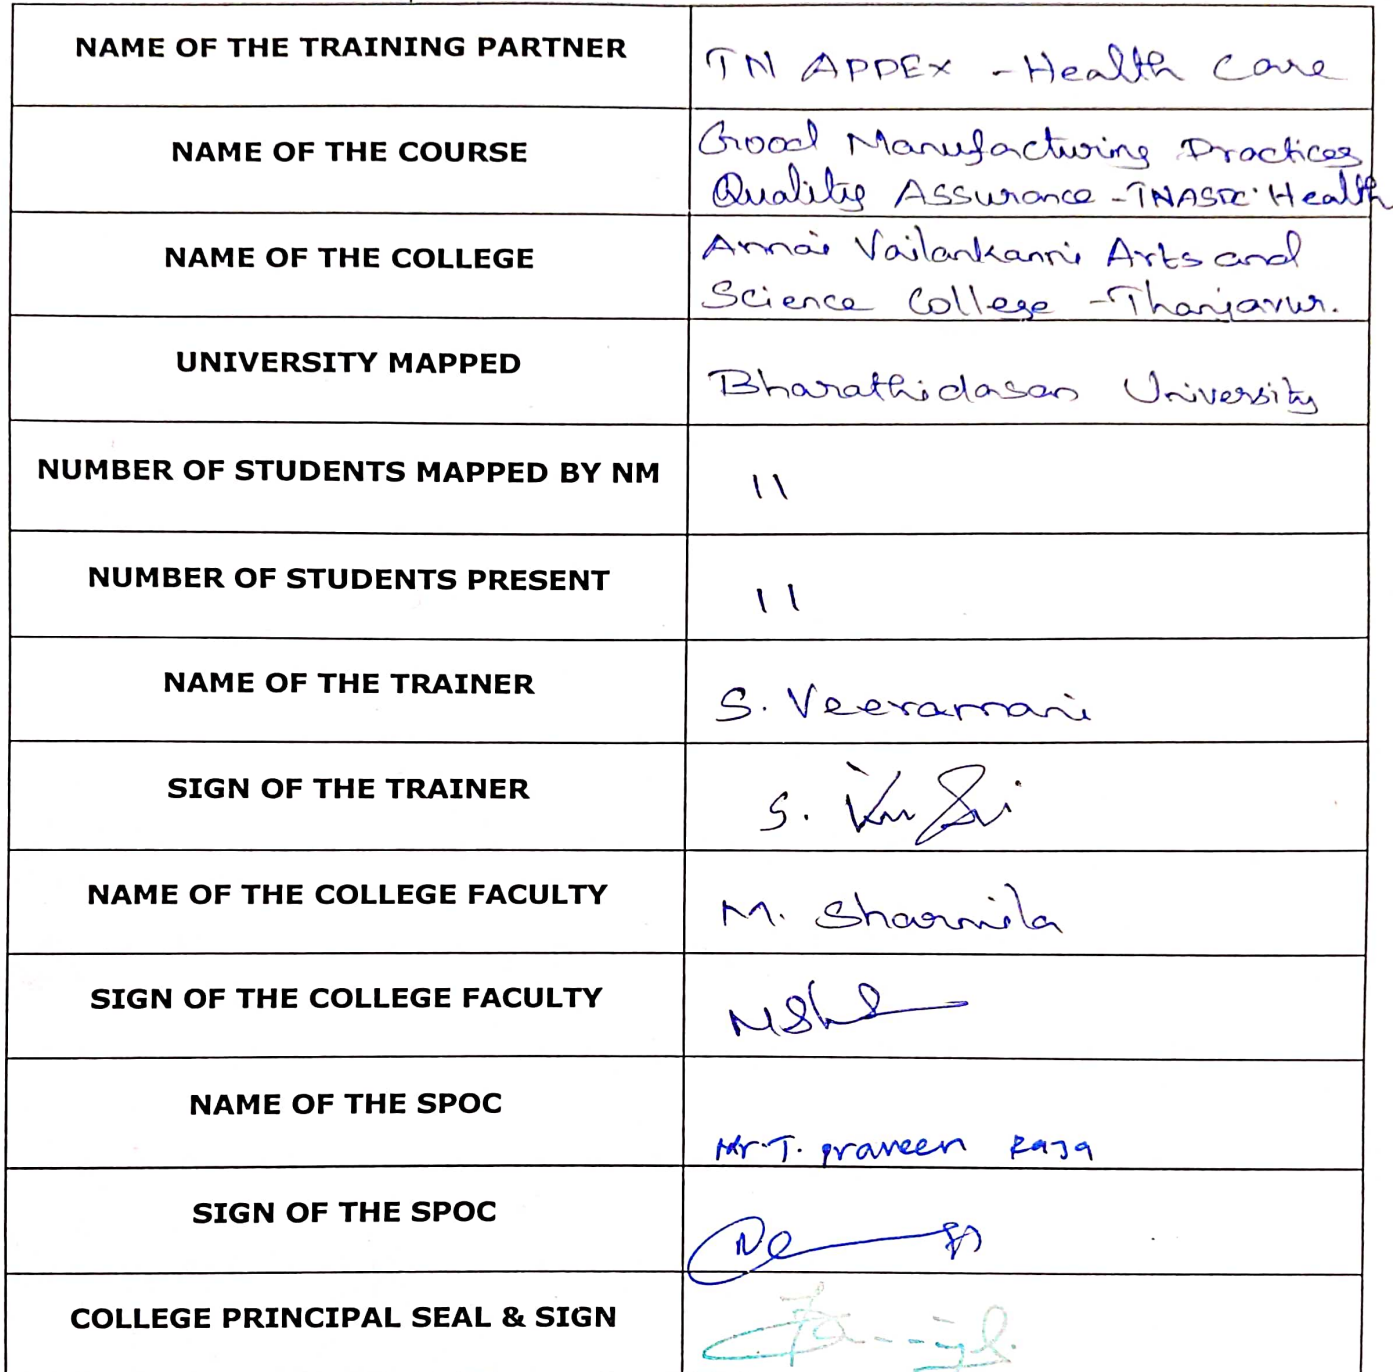 NAME OF THE TRAINING PARTNER
TN APPEX - Health Care
NAME OF THE COURSE
Good Manufacturing Practices
Quality Assurance - TNASDC Health
NAME OF THE COLLEGE
Annai Vailankanni Arts and
Science College - Thanjavur.
UNIVERSITY MAPPED
Bharathidasan University
NUMBER OF STUDENTS MAPPED BY NM
11
NUMBER OF STUDENTS PRESENT
11
NAME OF THE TRAINER
S. Veeramani
SIGN OF THE TRAINER
S.
NAME OF THE COLLEGE FACULTY
M. Sharmila
SIGN OF THE COLLEGE FACULTY
NAME OF THE SPOC
Mr. T. Praveen Raja
SIGN OF THE SPOC
COLLEGE PRINCIPAL SEAL & SIGN